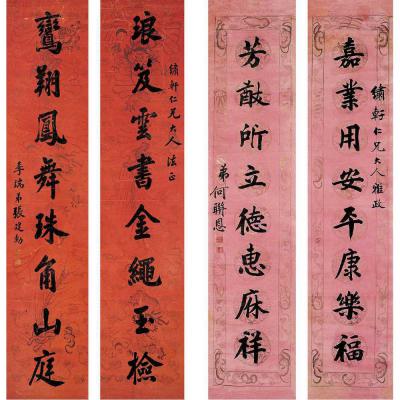 嘉業用安平康樂福
繡軒仁兄大人雅政
芳猷所立德惠庥祥
弟何聯恩
琅笈雲書金繩玉檢
繡軒仁兄大人法正
鸞翔鳳舞珠角山庭
季端弟張建勳